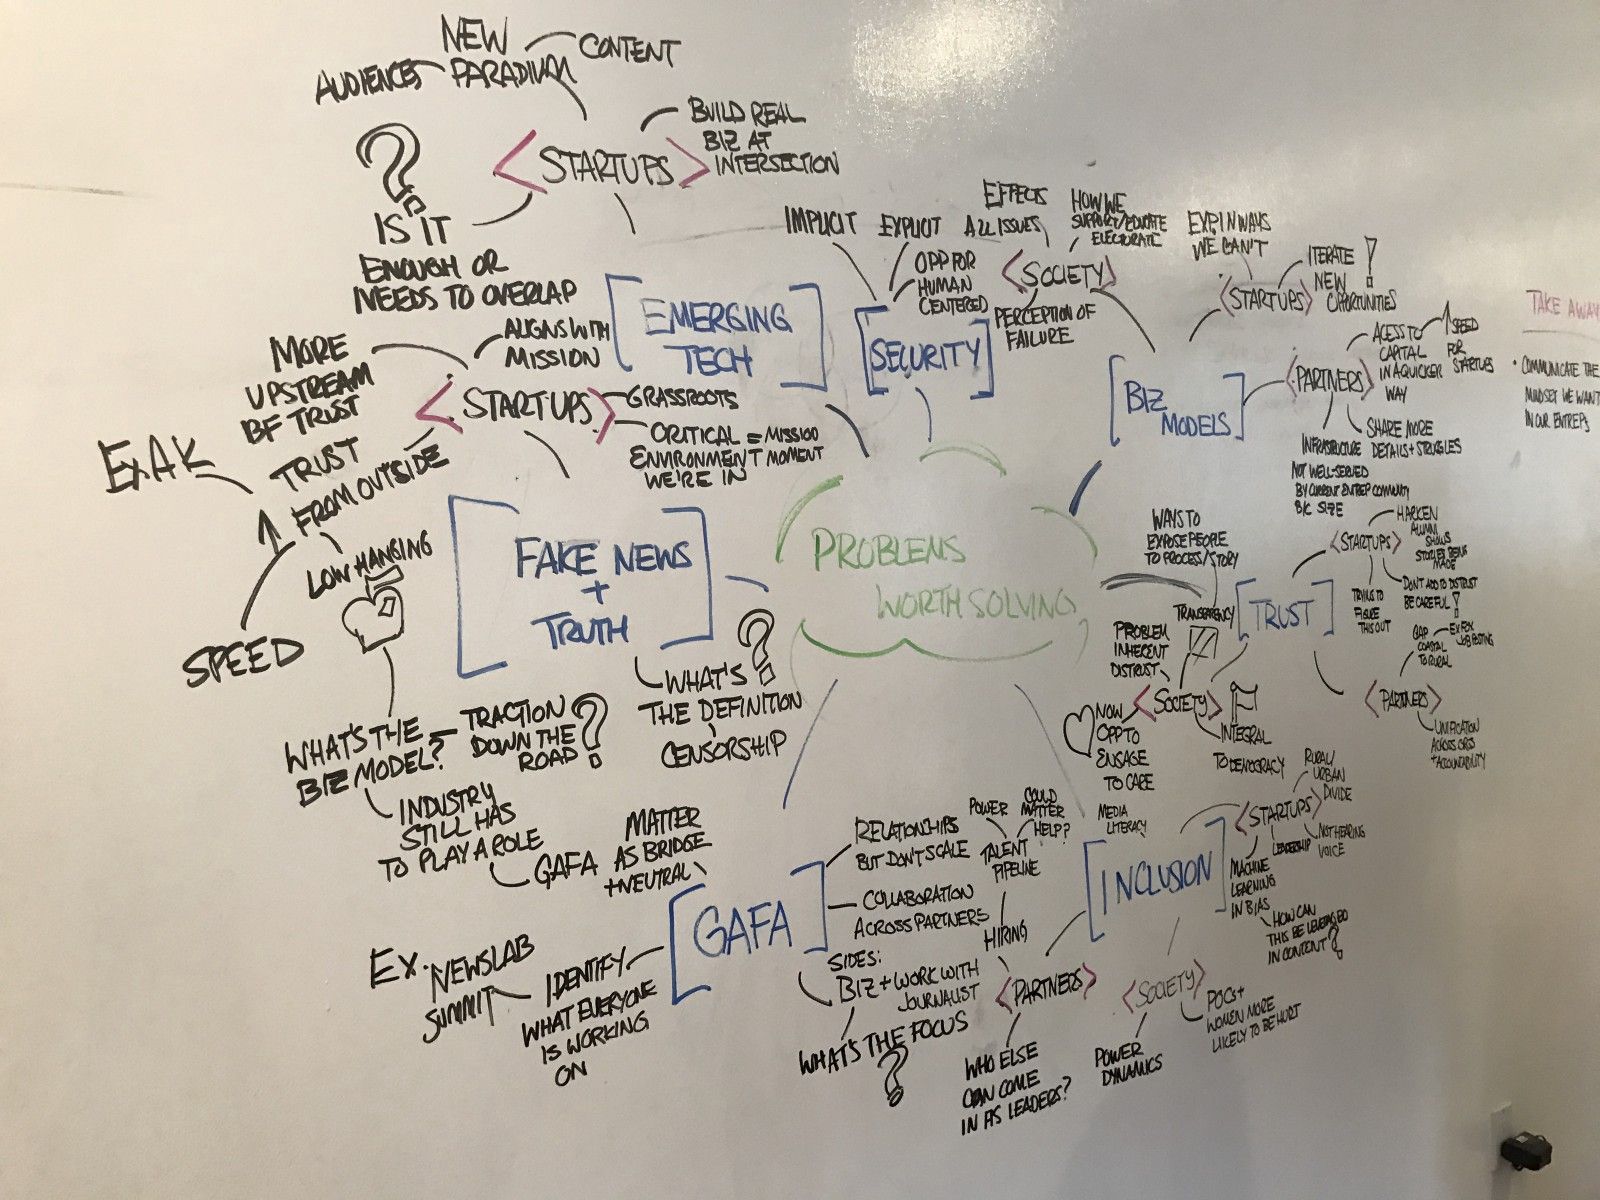 NEW
PARADIUM
AUDIENCES
CONTENT
<STARTUPS>
BUILD REAL
BIZ AT
INTERSECTION
?
IS IT
ENOUGH OR
NEEDS TO OVERLAP
[EMERGING
TECH]
MORE
UPSTREAM
BF TRUST
ALIGNS WITH
MISSION
<STARTUPS>
GRASSROOTS
CRITICAL = MISSION
ENVIRONMENT MOMENT
WE'RE IN
TRUST
FROM OUTSIDE
Ex AK
SPEED
LOW HANGING
[FAKE NEWS
+
TRUTH]
WHAT'S ?
THE DEFINITION
CENSORSHIP
WHAT'S THE
BIZ MODEL?
TRACTION
DOWN THE
ROAD ?
INDUSTRY
STILL HAS
TO PLAY A ROLE
GAFA
PROBLEMS
WORTH SOLVING
IMPLICIT
EXPLICIT
OPP FOR
HUMAN
CENTERED
[SECURITY]
EFFECTS
ALL ISSUES
HOW WE
SUPPORT/EDUCATE
ELECTORATE
<SOCIETY>
PERCEPTION OF
FAILURE
[BIZ
MODELS]
EXP IN WAYS
WE CAN'T
<STARTUPS>
ITERATE !
NEW
OPPORTUNITIES
<PARTNERS>
ACESS TO
CAPITAL
IN A QUICKER
WAY
SPEED
FOR
STARTUPS
SHARE MORE
DETAILS + STRUGGLES
INFRASTRUCTURE
NOT WELL-SERVED
BY CURRENT ENTREP COMMUNITY
B/C SIZE
TAKE AWAY
• COMMUNICATE THE
MINDSET WE WANT
IN OUR ENTREPS
[TRUST]
<STARTUPS>
HARKEN
ALUMNI
SHOWS
STORIES BEING
MADE
DON'T ADD TO DISTRUST
BE CAREFUL !
TRYING TO
FIGURE
THIS OUT
<PARTNERS>
GAP
COASTAL
TO RURAL
EX FOX
JOB POSTING
UNIFICATION
ACROSS ORGS
+ ACCOUNTABILITY
WAYS TO
EXPOSE PEOPLE
TO PROCESS/STORY
TRANSPARENCY
PROBLEM
INHERENT
DISTRUST
<SOCIETY>
NOW
OPP TO
ENGAGE
TO CARE
INTEGRAL
TO DEMOCRACY
[INCLUSION]
MEDIA
LITERACY
<STARTUPS>
RURAL/
URBAN
DIVIDE
NOT HEARING
VOICE
LEADERSHIP
MACHINE
LEARNING
IN BIAS
HOW CAN
THIS BE LEVERAGED
IN CONTENT ?
<SOCIETY>
POCs +
WOMEN MORE
LIKELY TO BE HURT
POWER
DYNAMICS
<PARTNERS>
HIRING
TALENT
PIPELINE
POWER
COULD
MATTER
HELP?
WHO ELSE
CAN COME
IN AS LEADERS?
[GAFA]
MATTER
AS BRIDGE
+ NEUTRAL
RELATIONSHIPS
BUT DON'T SCALE
COLLABORATION
ACROSS PARTNERS
SIDES:
BIZ + WORK WITH
JOURNALIST
WHAT'S THE FOCUS
?
IDENTIFY
WHAT EVERYONE
IS WORKING
ON
Ex. NEWSLAB
SUMMIT